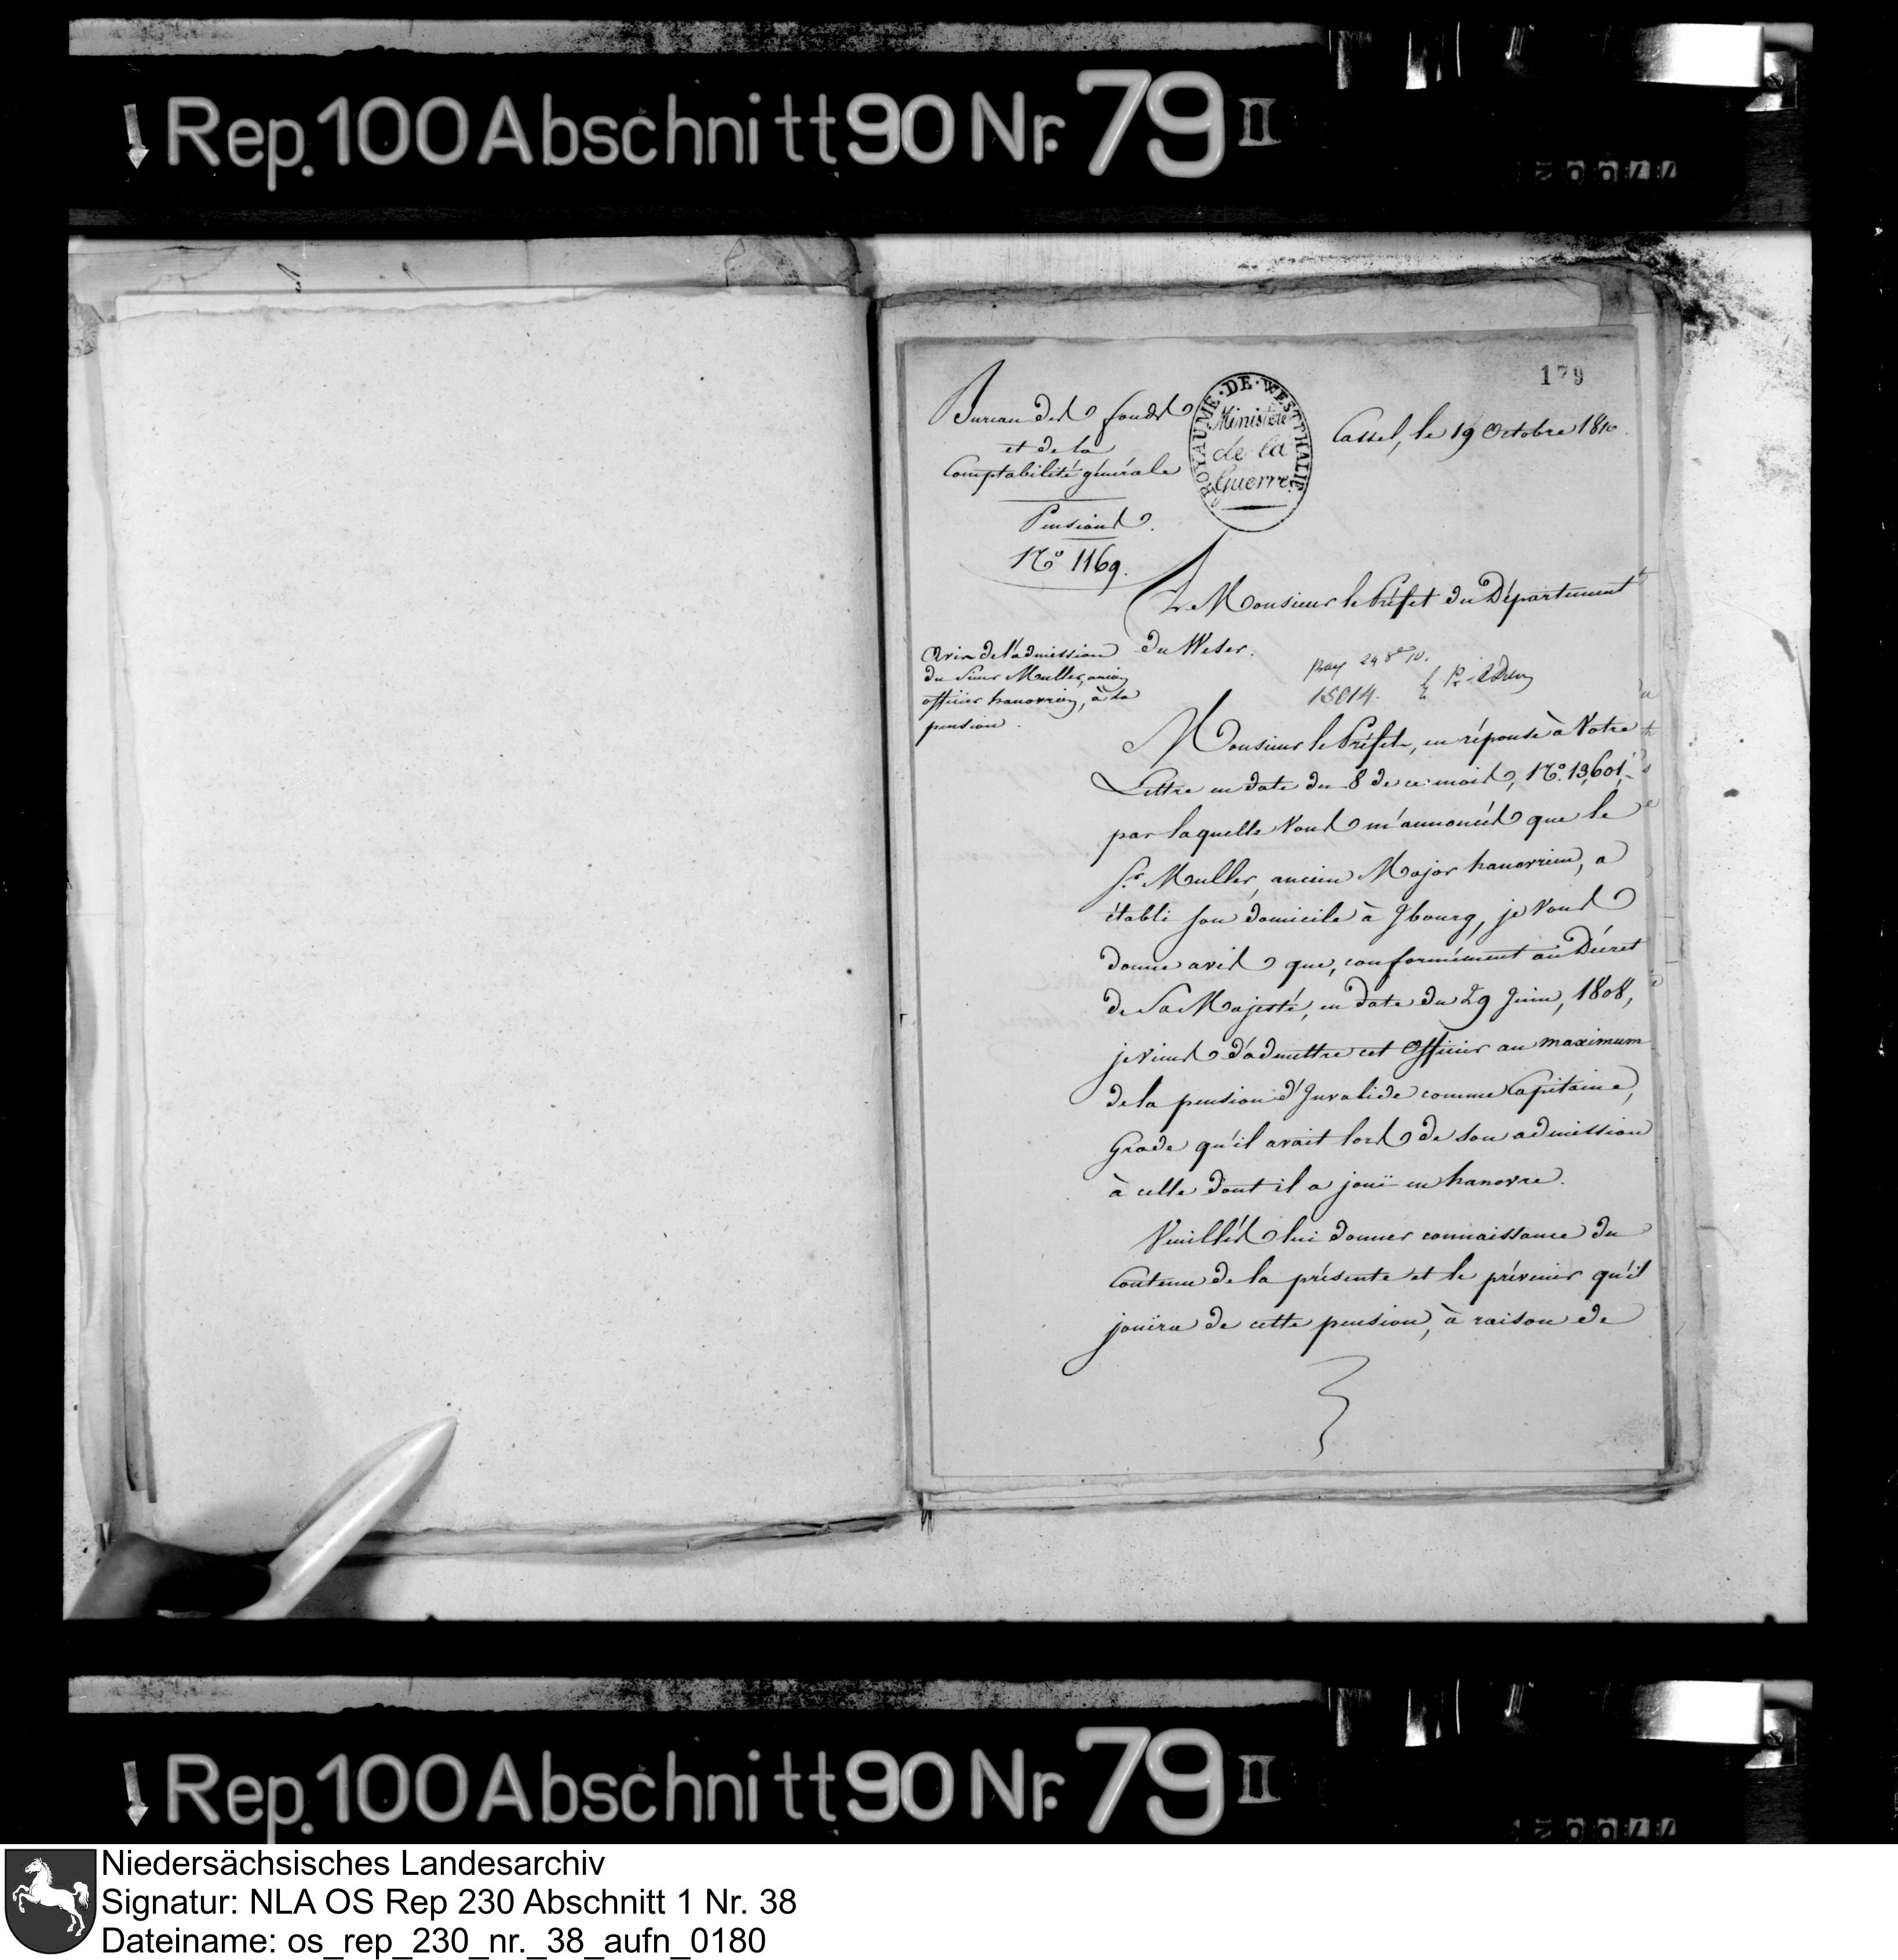 Rep. 100 Abschnitt 90 Nr. 79 II
179
Bureau des fonds
et de la
Comptabilité générale
Pensions.
N.º 1169.
ROYAUME·DE·WESTPHALIE·
Ministère
de la
Guerre
Cassel, le 19 Octobre 1810.
A Monsieur le Préfet du Département
du Weser.
Avis de l'admission
du Sieur Muller, ancien
officier hanovrien, à la
pension.
15014.
Monsieur le Préfet, en réponse à Votre
Lettre en date du 8 de ce mois, N.º 13,601,
par laquelle Vous m'annoncés que le
S.r Muller, ancien Major hanovrien, a
établi son domicile à Jbourg, je Vous
donne avis que, conformément au Décret
de Sa Majesté, en date du 29 Juin, 1808,
je viens d'admettre cet Officier au maximum
de la pension d'Invalide comme Capitaine,
Grade qu'il avait lors de son admission
à celle dont il a jouï en hanovre.
Veuillés lui donner connaissance du
Contenu de la présente et le prévenir qu'il
jouïra de cette pension, à raison de
Rep. 100 Abschnitt 90 Nr. 79 II
Niedersächsisches Landesarchiv
Signatur: NLA OS Rep 230 Abschnitt 1 Nr. 38
Dateiname: os_rep_230_nr._38_aufn_0180